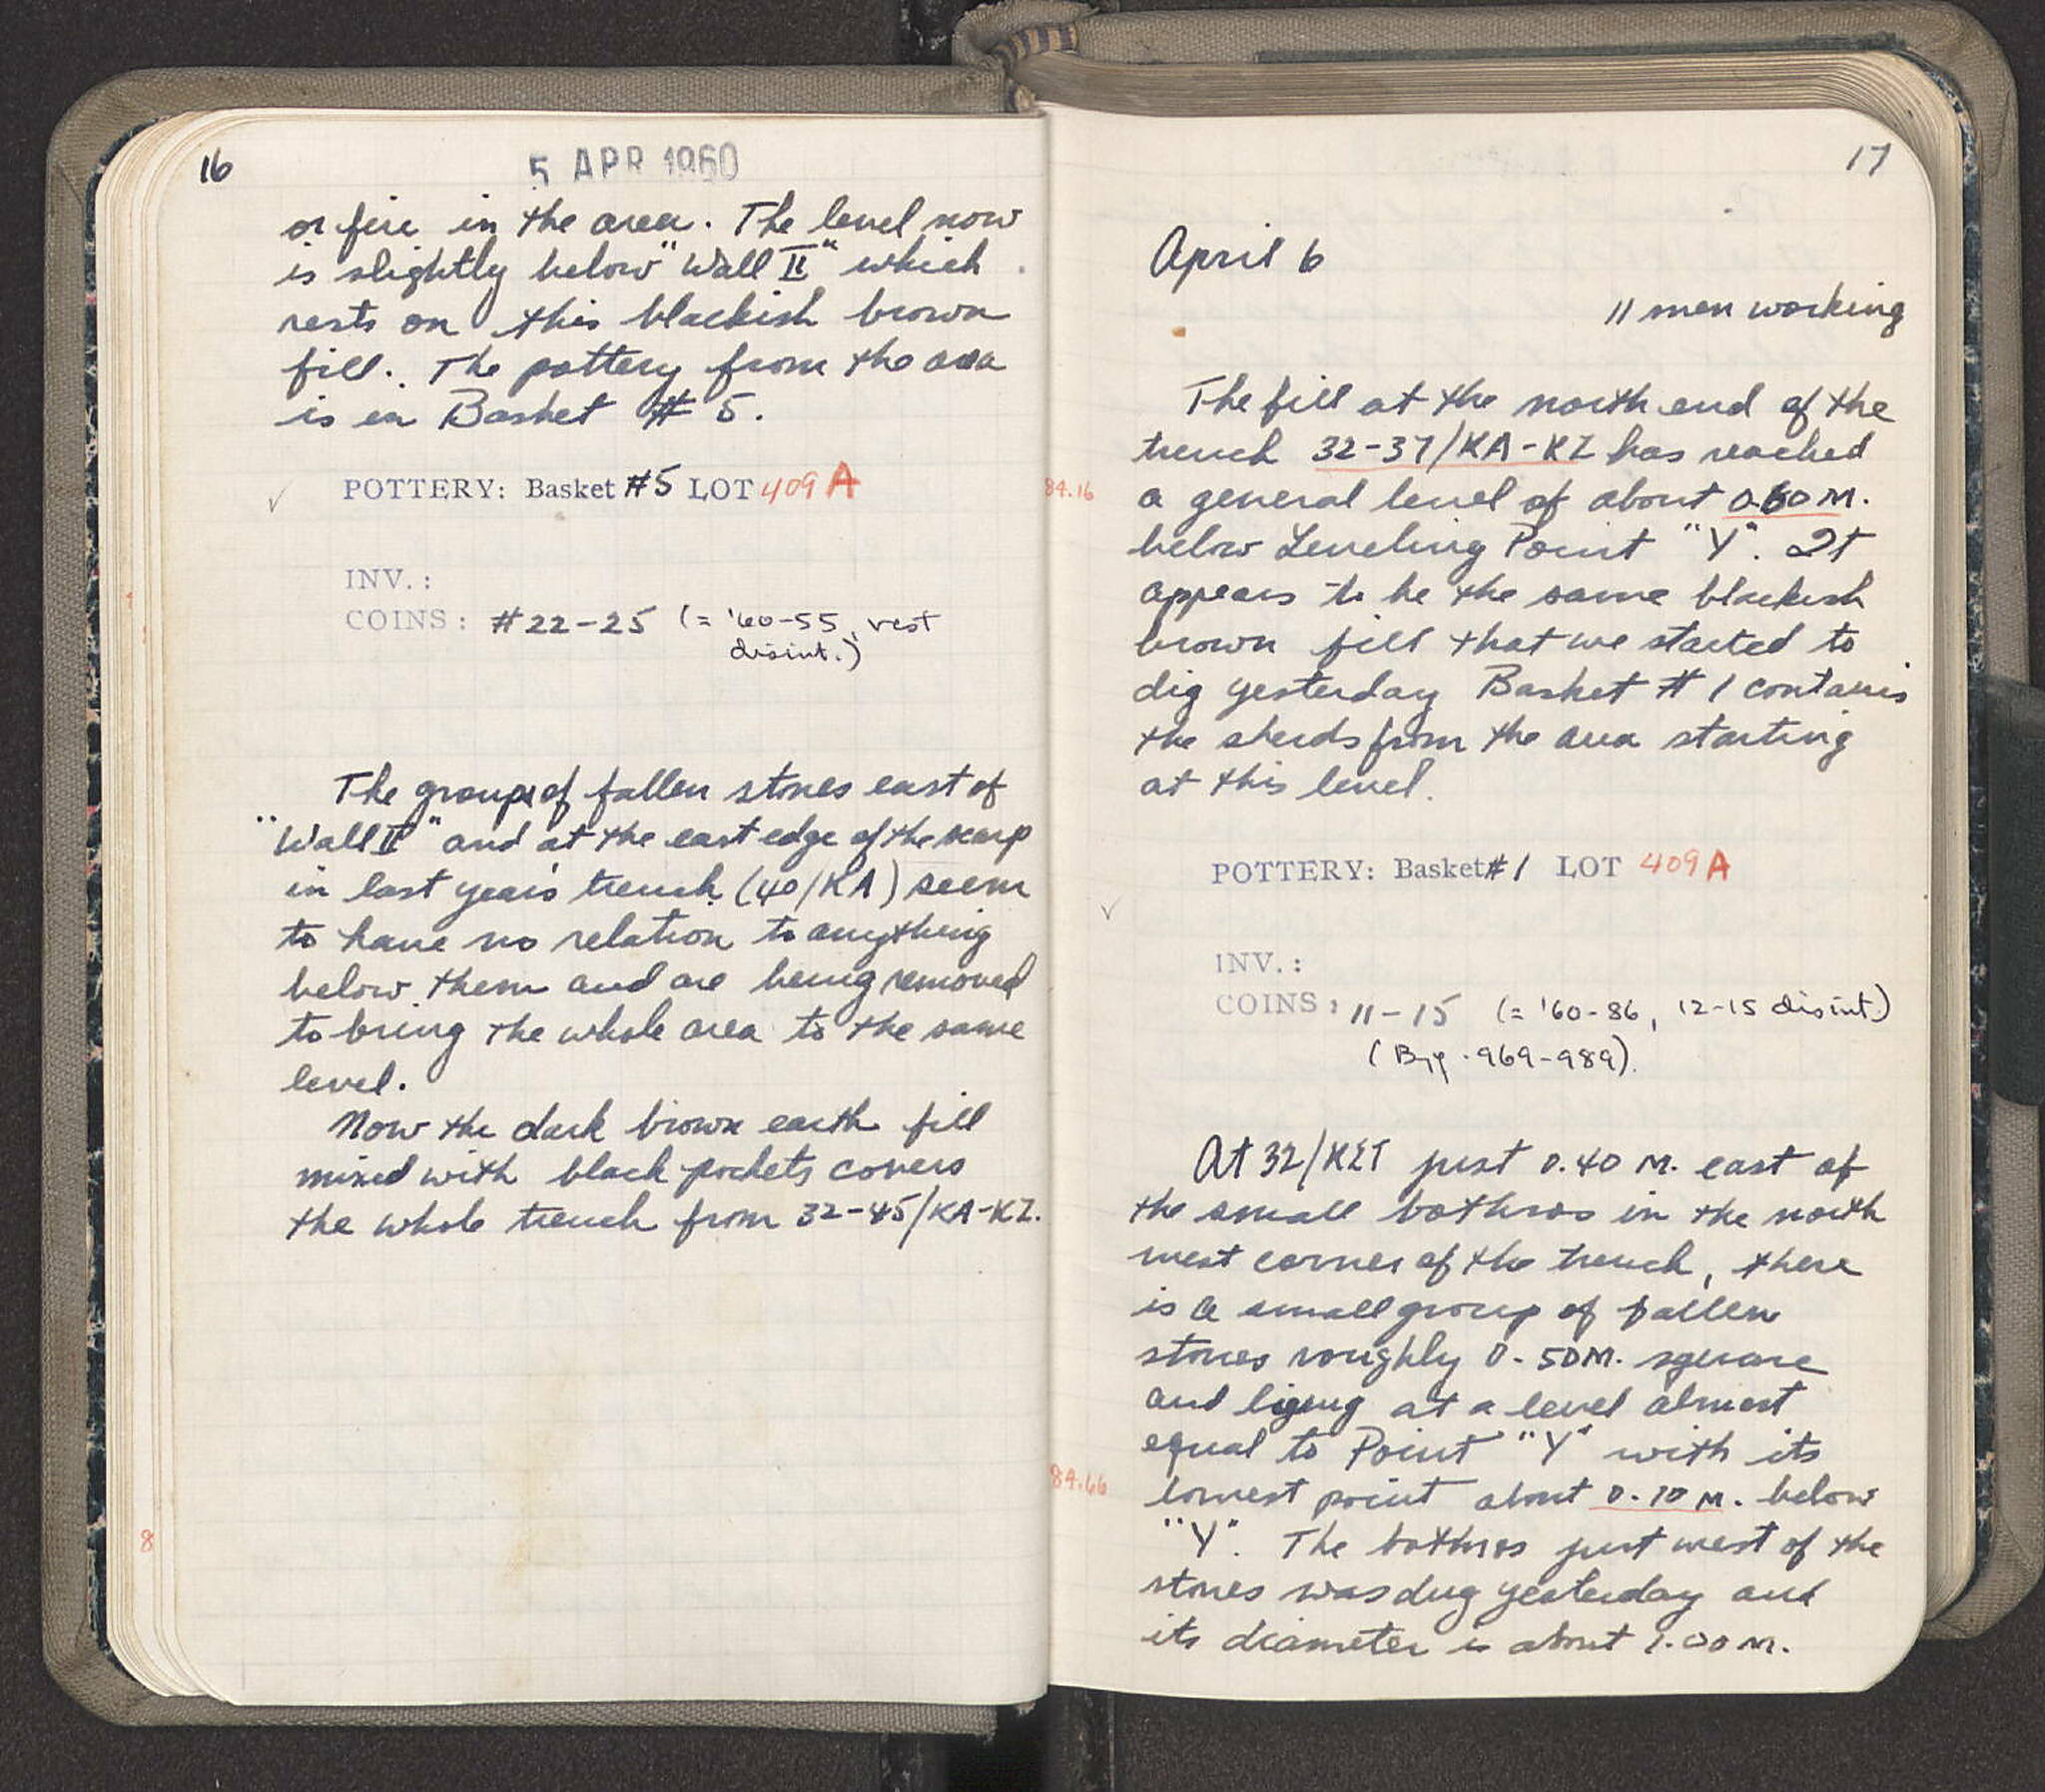 16
5 APR 1960
or fire in the area. The level now
is slightly below "Wall II" which
rests on this blackish brown
fill. The pottery from the area
is in Basket # 5.
POTTERY: Basket #5 LOT 409 A
INV.:
COINS: #22-25 (= '60-55, rest
disint.)
The group of fallen stones east of
"Wall II" and at the east edge of the scarp
in last year's trench (40/KA) seem
to have no relation to anything
below them and are being removed
to bring the whole area to the same
level.
Now the dark brown earth fill
mixed with black pockets covers
the whole trench from 32-45/KA-KZ.
8
17
April 6
11 men working
The fill at the north end of the
trench 32-37/KA-KZ has reached
84.16
a general level of about 0.60 M.
below Leveling Point "Y". It
appears to be the same blackish
brown fill that we started to
dig yesterday Basket # 1 contains
the sherds from the area starting
at this level.
POTTERY: Basket #1 LOT 409 A
INV.:
COINS: 11-15 (= '60-86, 12-15 disint.)
(Byz. 969-989).
At 32/ just 0.40 M. east of
the small bothros in the north
west corner of the trench, there
is a small group of fallen
stones roughly 0.50 M. square
and lying at a level almost
equal to Point "Y" with its
84.66
lowest point about 0.10 M. below
"Y". The bothros just west of the
stones was dug yesterday and
its diameter is about 1.00 M.